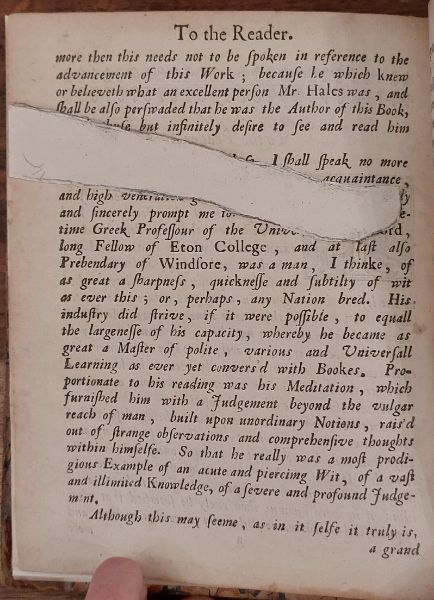 To the Reader.
more then this needs not to be ſpoken in reference to the
advancement of this Work ; becauſe he which knew
or believeth what an excellent perſon Mr. Hales was, and
ſhall be alſo perſwaded that he was the Author of this Book,
but infinitely deſire to ſee and read him
I ſhall ſpeak no more
acquaintance,
and high
and ſincerely prompt me
time Greek Profeſſour of the
long Fellow of Eton College, and at laſt alſo
Prebendary of Windſore, was a man, I thinke, of
as great a ſharpneſs, quickneſſe and ſubtilty of wit
as ever this ; or, perhaps, any Nation bred. His
induſtry did ſtrive, if it were poſſible, to equall
the largeneſſe of his capacity, whereby he became as
great a Maſter of polite, various and Univerſall
Learning as ever yet convers'd with Bookes. Pro-
portionate to his reading was his Meditation, which
furniſhed him with a Judgement beyond the vulgar
reach of man, built upon unordinary Notions, rais'd
out of ſtrange obſervations and comprehenſive thoughts
within himſelfe. So that he really was a moſt prodi-
gious Example of an acute and piercing Wit, of a vaſt
and illimited Knowledge, of a ſevere and profound Judge-
ment.
Although this may ſeeme, as in it ſelfe it truly is,
a grand